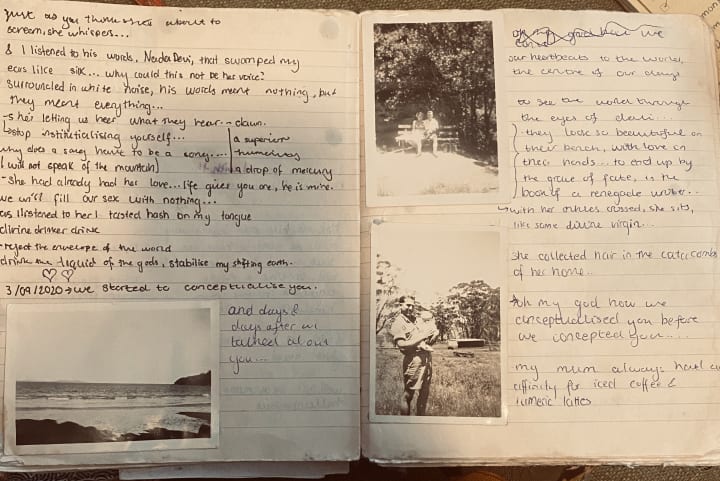 just as you think she's about to
scream, she whispers...
& I listened to his words, Nanda Devi, that swamped my
ears like silk... why could this not be her voice?
surrounded in white noise, his words meant nothing, but
they meant everything...
- she's letting us hear what they hear - dawn.
stop institutionalising yourself...
why does a song have to be a song...
(I will not speak of the mountain)
a superior
humming
a drop of mercury
- She had already had her love... life gives you one, he is mine.
we will fill our sex with nothing...
as I listened to her I tasted hash on my tongue
drink
- reject the envelope of the world
drink the liquid of the gods, stabilise my shifting earth.
3/09/2020 → we started to conceptualise you.
and days &
days after we
talked about
you...
oh my god how we
our heartbeats to the world,
the centre of our days
to see the world through
the eyes of
they look so beautiful on
their bench, with love on
their hands... to end up by
the grace of fate, is the
book of a renegade writer...
→ with her ankles crossed, she sits,
like some divine virgin...
She collected hair in the catacombs
of her home...
oh my god how we
conceptualised you before
we concepted you....
my mum always had an
affinity for iced coffee &
turmeric lattes